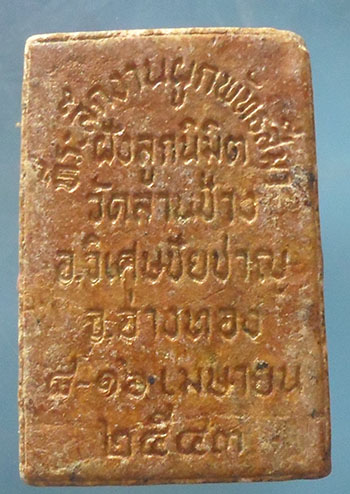 ที่ระลึกงานผูกพัทธสีมา
ฝังลูกนิมิต
วัดลานช้าง
อ.วิเศษชัยชาญ
จ.อ่างทอง
๘-๑๖ เมษายน
๒๕๔๓